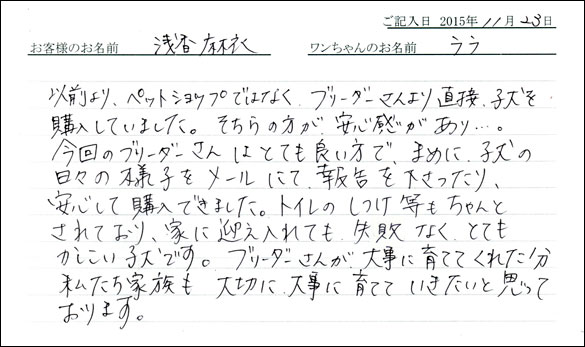 ご記入日 2015年 11月 23日
お客様のお名前 浅香麻衣 ワンちゃんのお名前 ララ
以前より、ペットショップではなく、ブリーダーさんより直接、子犬を
購入していました。そちらの方が、安心感があり…。
今回のブリーダーさんはとても良い方で、まめに、子犬の
日々の様子をメールにて、報告を下さったり、
安心して購入できました。トイレのしつけ等もちゃんと
されており、家に迎え入れても、失敗なく、とても
かしこい子犬です。ブリーダーさんが大事に育ててくれた分
私たち家族も大切に、大事に育てていきたいと思って
おります。